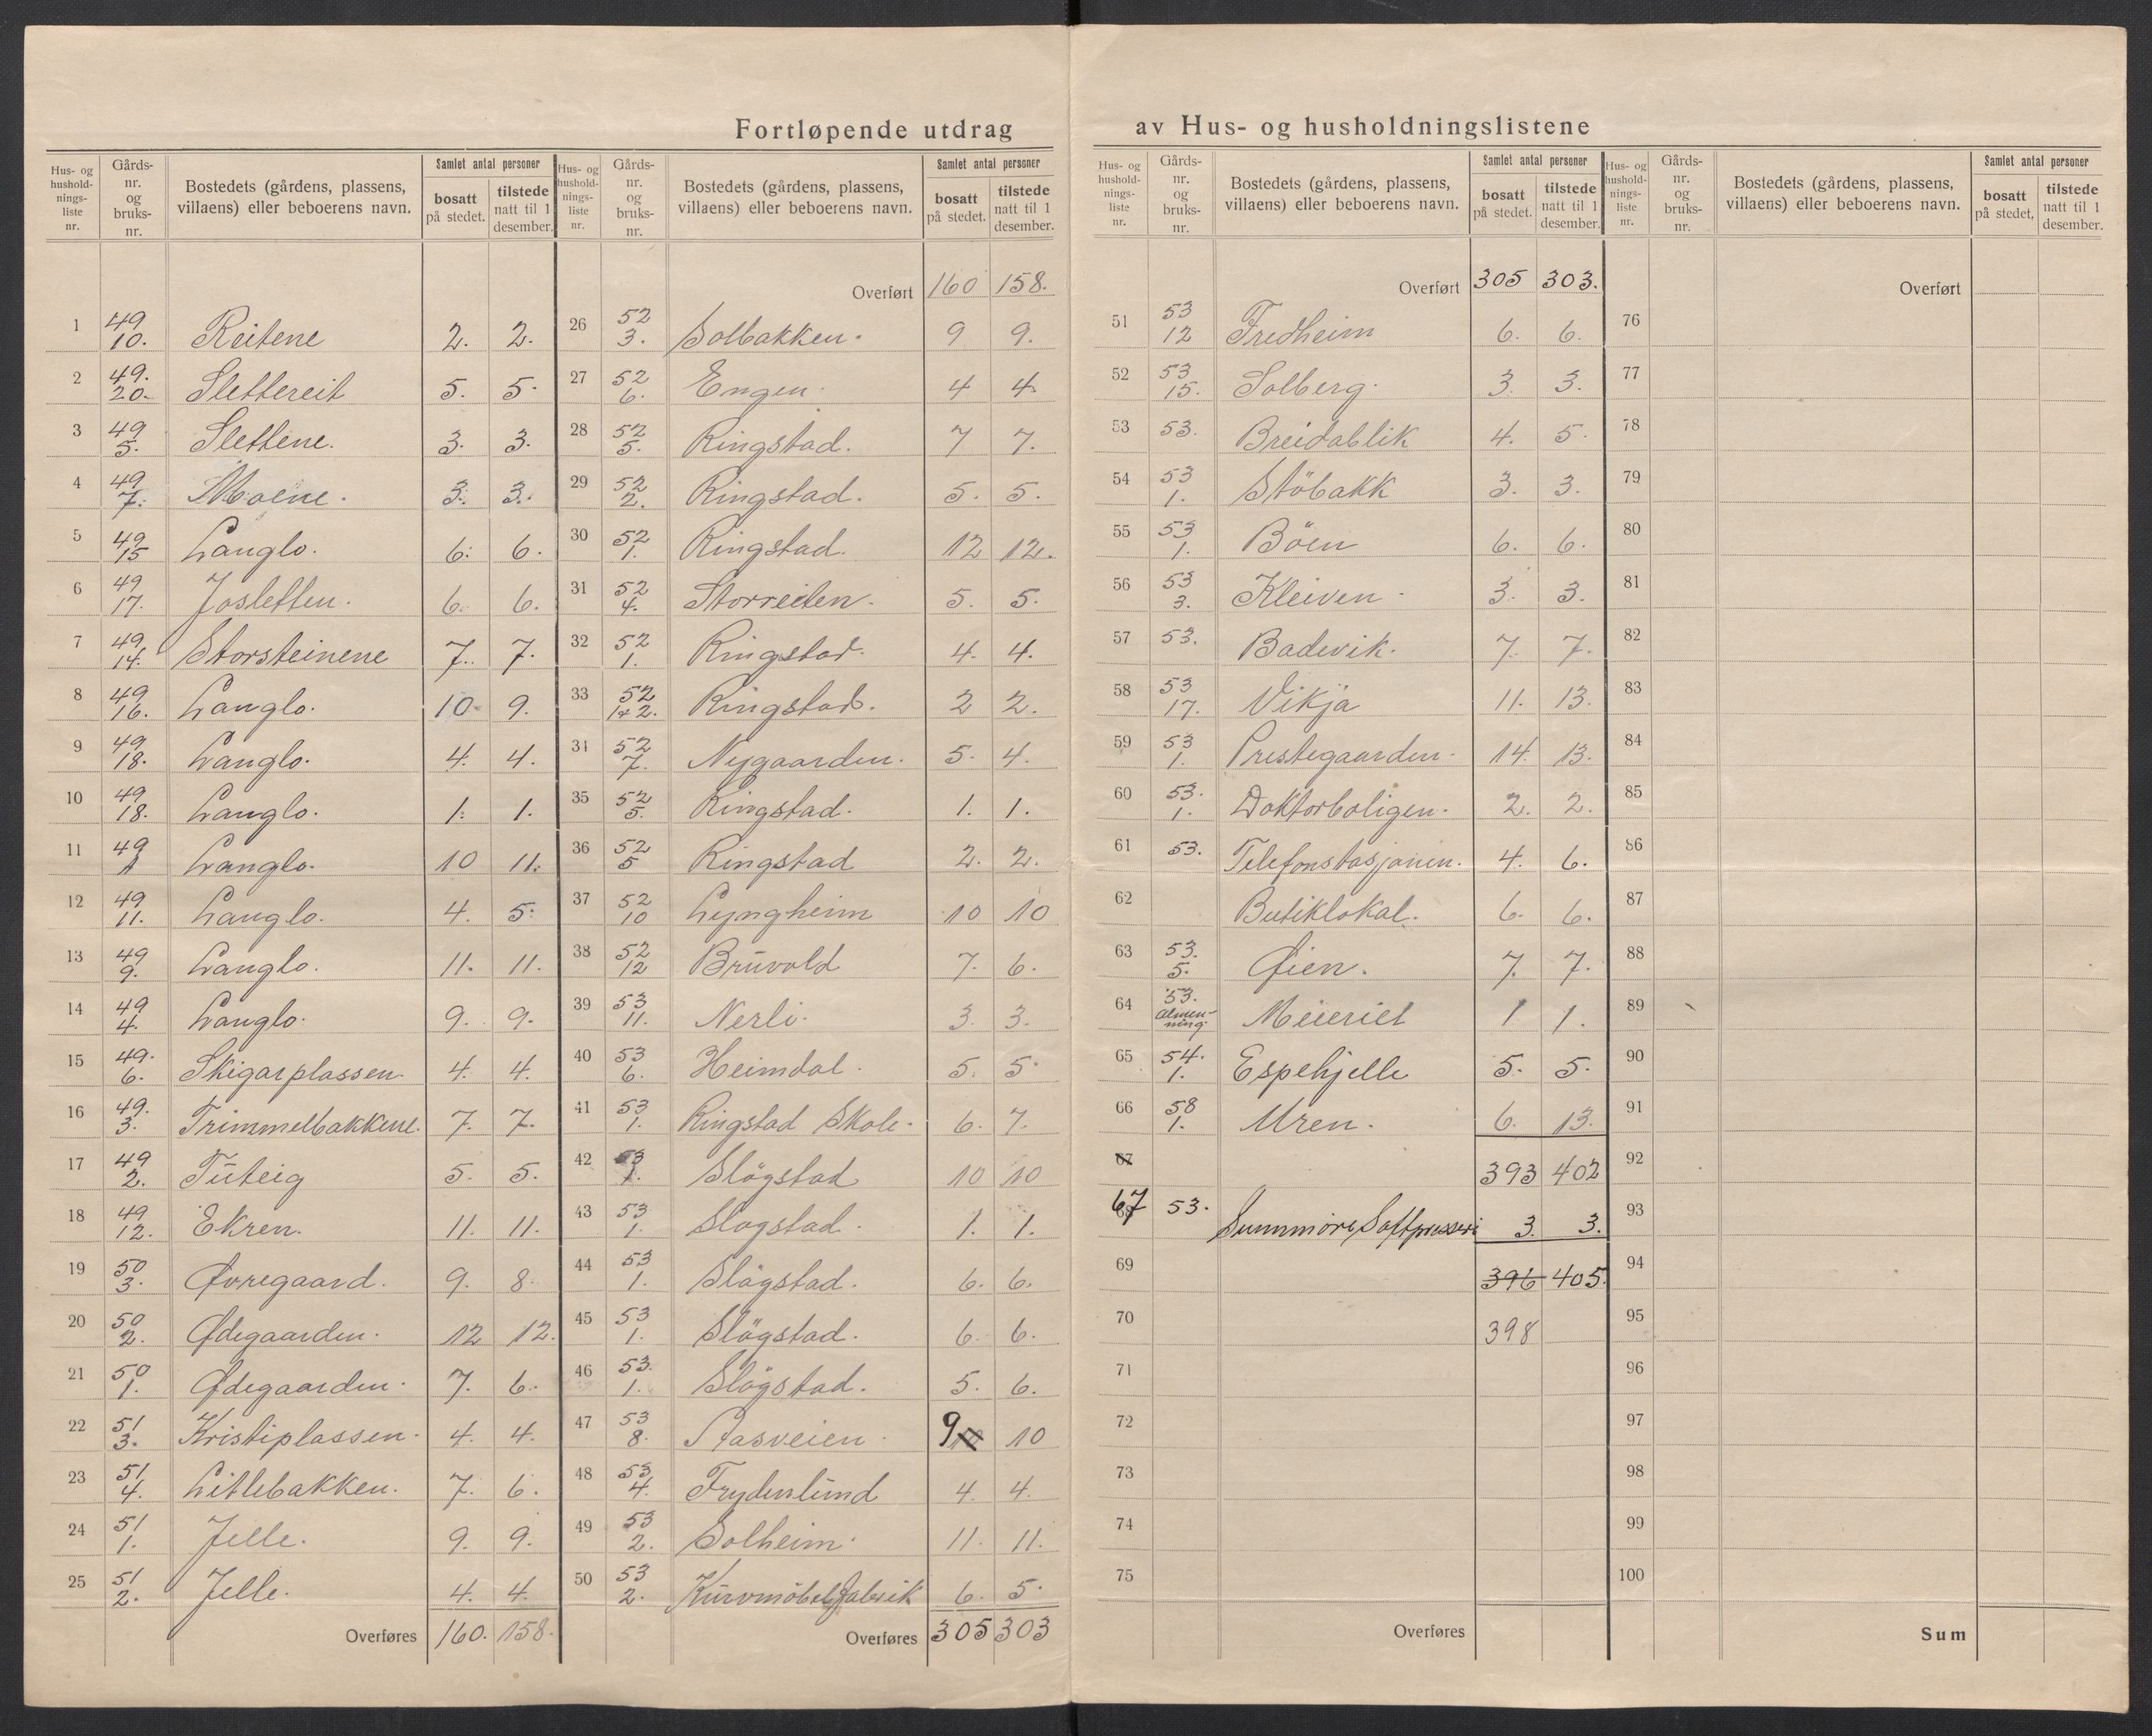 Fortløpende utdrag av Hus- og husholdningslistene
Hus- og husholdnings-liste nr. | Gårds-nr. og bruks-nr. | Bostedets (gårdens, plassens, villaens) eller beboerens navn. | Samlet antal personer bosatt på stedet. | tilstede natt til 1 desember.
1 49/10. Reitene 2. 2.
2 49./20. Slettereit 5. 5.
3 49/5. Slettene. 3. 3.
4 49/7. Moene. 3. 3.
5 49/15 Langlo. 6. 6.
6 49/17. Josletten. 6. 6.
7 49/14. Storsteinene 7. 7.
8 49/16. Langlo. 10 9.
9 49/18. Langlo. 4. 4.
10 49/18. Langlo. 1. 1.
11 49/1 Langlo. 10 11.
12 49/11. Langlo. 4. 5.
13 49/9. Langlo. 11. 11.
14 49/4. Langlo. 9. 9.
15 49./6. Skigarplassen 4. 4.
16 49./3. Trimmelbakkene. 7. 7.
17 49/2. Tüteig 5. 5.
18 49/12. Ekren. 11. 11.
19 50/3. Øvregaard. 9. 8.
20 50/2. Ødegaarden. 12 12.
21 50/1. Ødegaarden. 7. 6.
22 51/3. Kristiplassen. 4. 4.
23 51/4. Litlebakken. 7. 6.
24 51/1. Jelle. 9. 9.
25 51/2. Jelle. 4. 4.
Overføres 160. 158.
Hus- og husholdnings-liste nr. | Gårds-nr. og bruks-nr. | Bostedets (gårdens, plassens, villaens) eller beboerens navn. | Samlet antal personer bosatt på stedet. | tilstede natt til 1 desember.
Overført 160 158.
26 52/3. Solbakken. 9 9.
27 52/6. Engen 4 4.
28 52/5. Ringstad. 7 7.
29 52/2. Ringstad. 5. 5.
30 52/1. Ringstad. 12 12.
31 52/4. Storreiten. 5. 5.
32 52/1. Ringstad. 4. 4.
33 52/1+2. Ringstad. 2 2.
34 52/7. Nygaarden. 5. 4.
35 52/5. Ringstad. 1. 1.
36 52/5 Ringstad 2. 2.
37 52/10 Lyngheim 10 10
38 52/12 Brüvold 7. 6.
39 53/11. Nerli. 3. 3.
40 53/6. Heimdal. 5. 5.
41 53/1. Ringstad Skole. 6. 7.
42 53/1. Slögstad 10 10
43 53/1. Slogstad. 1. 1.
44 53/1. Slögstad. 6. 6.
45 53/1. Slögstad. 6. 6.
46 53./1. Slögstad. 5. 6.
47 53/8. Aasveien 9 10 10
48 53/4. Frydenlünd 4. 4.
49 53/2. Solheim. 11. 11.
50 53/2. Kürvmöbelfabrik 6. 5.
Overføres 305 303
Hus- og husholdnings-liste nr. | Gårds-nr. og bruks-nr. | Bostedets (gårdens, plassens, villaens) eller beboerens navn. | Samlet antal personer bosatt på stedet. | tilstede natt til 1 desember.
Overført 305 303.
51 53/12 Fredheim 6. 6.
52 53/15. Solberg. 3. 3.
53 53. Breidablik 4. 5.
54 53/1. Stöbakk 3. 3.
55 53/1. Böen 6. 6.
56 53/3. Kleiven 3. 3.
57 53. Badevik. 7. 7.
58 53/17. Vikja 11. 13.
59 53/1. Prestegaarden. 14. 13.
60 53./1. Doktorboligen. 2. 2.
61 53. Telefonstasjonen. 4. 6.
62 Butiklokal. 6. 6.
63 53./5. Øien. 7. 7.
64 53. Almenning. Meieriet 1 1.
65 54./1. Espehjelle 5. 5.
66 58/1. Uren. 6. 13.
67 393 402
67 53. Sunnmöre Saftpresseri 3. 3.
69 396 405.
70 398
71
72
73
74
75
Overføres
Hus- og husholdnings-liste nr. | Gårds-nr. og bruks-nr. | Bostedets (gårdens, plassens, villaens) eller beboerens navn. | Samlet antal personer bosatt på stedet, | tilstede natt til 1 desember.
Overført
76
77
78
79
80
81
82
83
84
85
86
87
88
89
90
91
92
93
94
95
96
97
98
99
100
Sum